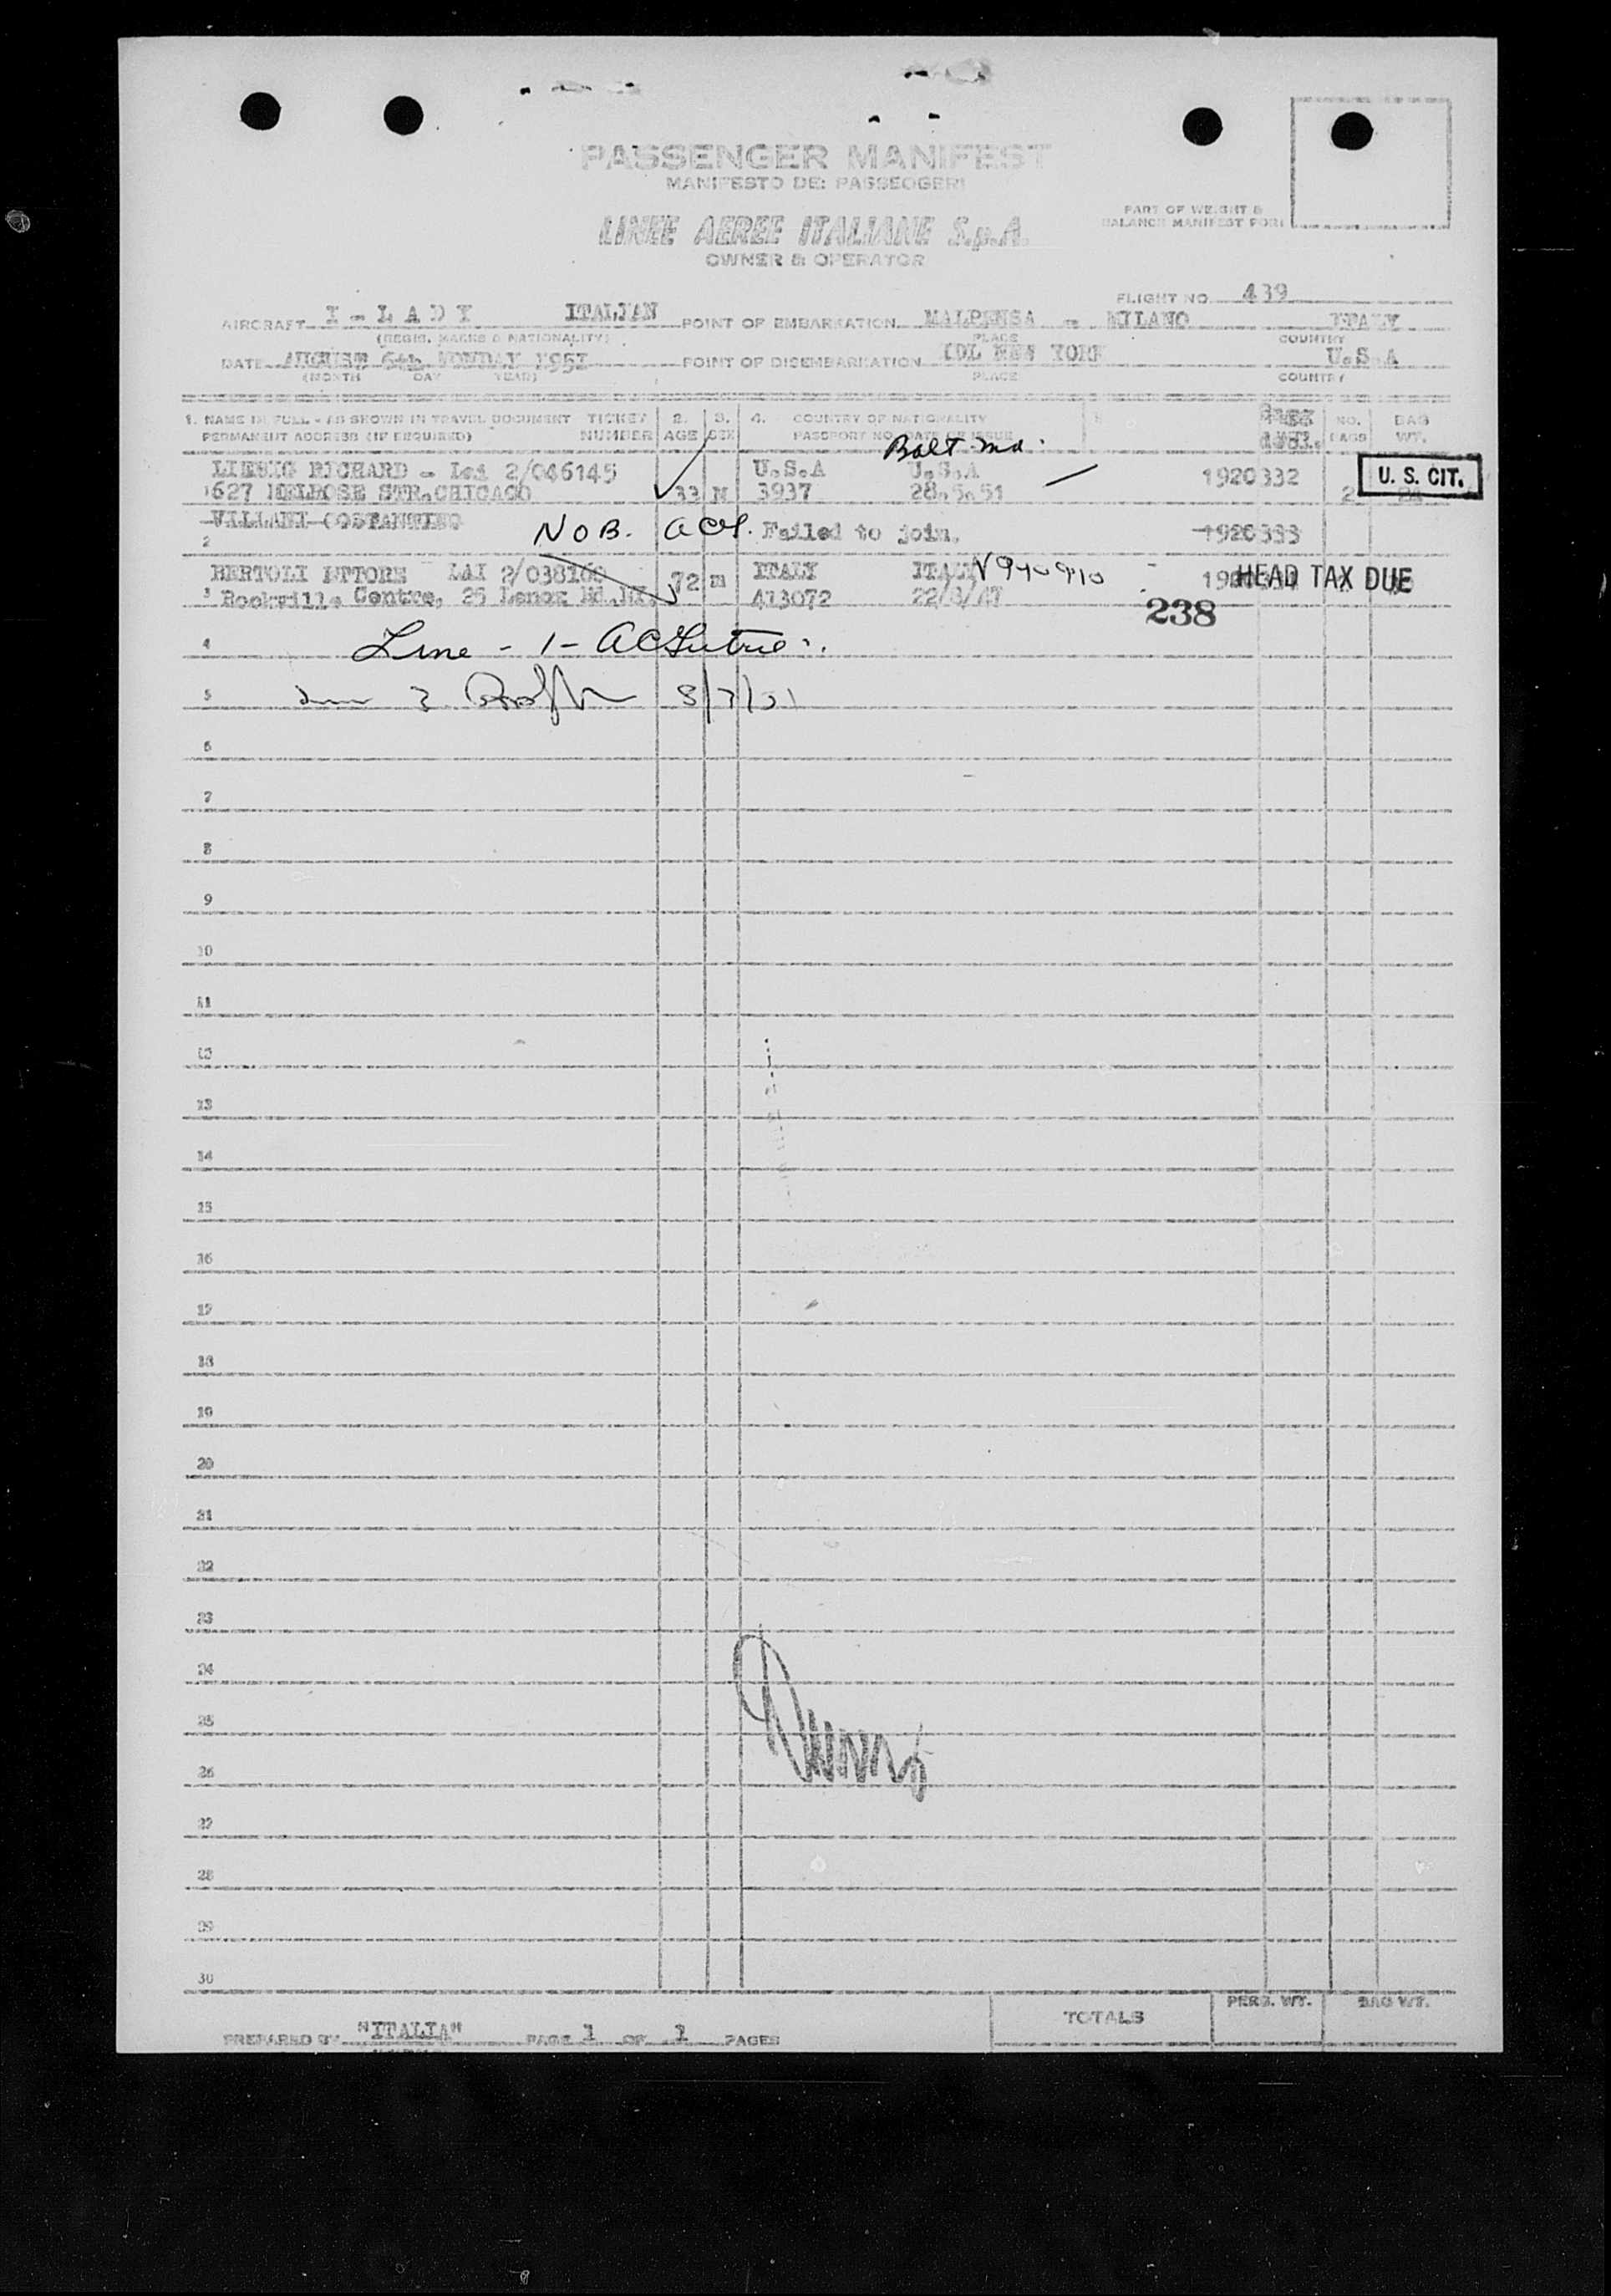 PASSENGER MANIFEST
MANIFESTO DEI PASSEGGERI
LINEE AEREE ITALIANE S.p.A.
OWNER & OPERATOR
PART OF WEIGHT &
BALANCE MANIFEST FORM
FLIGHT NO. 439
AIRCRAFT I-LADY ITALIAN POINT OF EMBARKATION MALPENSA - MILANO ITALY
(REGIS. MARKS & NATIONALITY) PLACE COUNTRY
DATE AUGUST 6th MONDAY 1951 POINT OF DISEMBARKATION IDL NEW YORK U.S.A
(MONTH DAY YEAR) PLACE COUNTRY
1. NAME IN FULL - AS SHOWN IN TRAVEL DOCUMENT TICKET 2. 3. 4. COUNTRY OF NATIONALITY NO. BAG
PERMANENT ADDRESS (IF REQUIRED) NUMBER AGE SEX PASSPORT NO. DATE OF ISSUE BAGS WT.
Balt Md.
RICHARD - Lai 2/046145 U.S.A U.S.A 1920332 U. S. CIT.
1 627 MELROSE STR. CHICAGO 33 M 3937 28.5.51 2
VILLANI COSTANTINO NOB. Failed to join. 1920333
2
BERTOLI ETTORE LAI 2/038160 72 m ITALY ITALY HEAD TAX DUE
3 Rockville Centre, 25 Lenox Rd. 413072 238
4 Line - 1 -
5 3 8/7/51
6
7
8
9
10
11
12
13
14
15
16
17
18
19
20
21
22
23
24
25
26
27
28
29
30
TOTALS PERS. WT. BAG WT.
PREPARED BY "ITALIA" PAGE 1 OF 1 PAGES